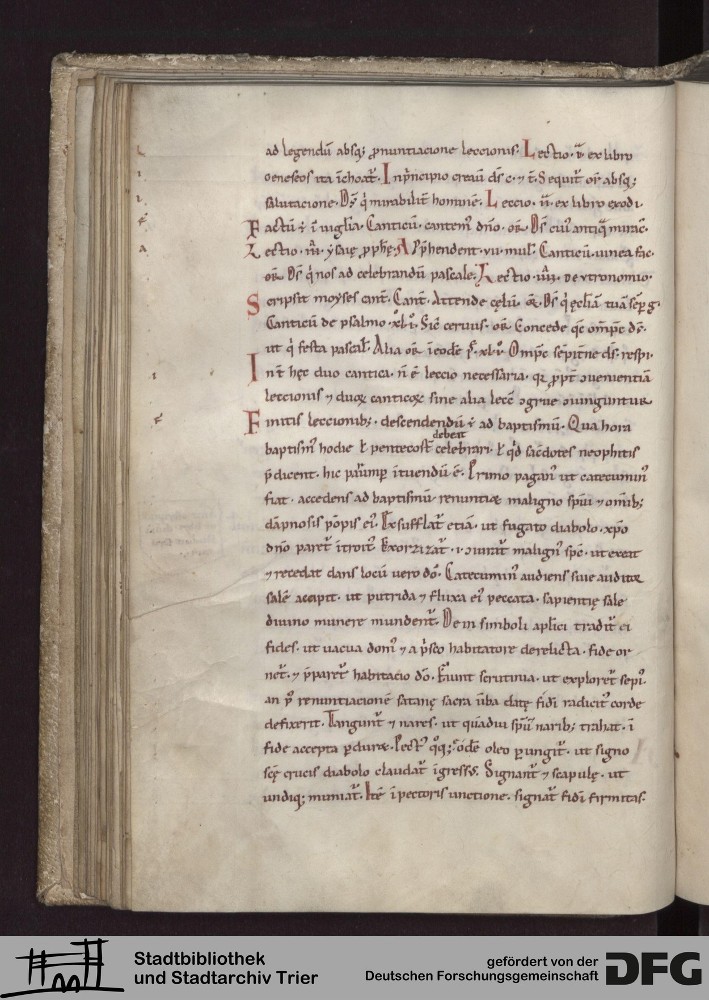 ad legendū absq; ꝓnuntiacione leccionis. Lectio .i. ex libro
Geneseos ita īchoat᷑. In pⁱncipio creauit ds̄ c. ⁊ t̄. Sequit᷑ or̄ absq;
salutacione. Ds̄ qⁱ mirabilit᷑ hominē. Leccio .ii. ex libro exodi.
Factū ē ī uigilia. Canticū. cantem᷒ dn̄o. or̄. Ds̄ cui᷒ antiqͣ mirac̄.
Lectio .iii. ysaię ꝓphę. Apꝓhendent .vii. mul̄. Canticū. uinea fac̄.
or̄. Ds̄ qⁱ nos ad celebrandū pascale. Lectio .iiii. deutronomio.
Scripsit moyses cant̄. Cant̄. Attende cęlū. or̄. Ds̄ qⁱ ęcl̄iā tuā sēp g.
Canticū de psalmo .xli. Sic̄ ceruus. or̄. Concede qs̄ om̄ps̄ ds̄.
ut qⁱ festa pascal̄. Alia or̄. ī eodē ps̄. xli. Om̄ps̄ sēpit̄ne ds̄. respi.
Int̄ hęc duo cantica. n̄ ē leccio necessaria. qꝛ ꝓpt̄ ɔuenientiā
leccionis ⁊ duoꝝ canticoꝝ sine alia lecc̄ ɔgrue ɔiunguntur.
Finitis leccionib; . descendendū ē ad baptismū. Qua hora
debeat
baptism᷒ hodie ł pentecost̄ celebrari. ł qͥd sac̄dotes neophitis
p̄dicent. hic parūmꝑ ītuendū ē. Primo pagan᷒ ut catecumin᷒
fiat. accedens ad baptismū renuntiat maligno spū ⁊ om̄ib;
dāpnosis pōpis ei᷒. Exsufflat᷑ etiā. ut fugato diabolo. xp̄o
dn̄o paret᷑ ītroit᷒. Exorzizat᷑ .i. ɔiurat᷑ malign᷒ spc̄. ut exeat
⁊ recedat dans locū uero dō. Catecumin᷒ audiens siue auditor
salē accipit. ut putrida ⁊ fluxa ei᷒ peccata. sapientię sale
diuino munere mundent᷑. Dein simboli apl̄ici tradit᷑ ei
fides. ut uacua dom᷒ ⁊ a pⁱsco habitatore derelicta. fide or
net᷑. ⁊ p̄paret᷑ habitacio dō. Fiunt scrutinia. ut exploret᷑ sepi᷒.
an p᷒ renuntiacionē satanę sacra uība datę fidei radicit᷒ corde
defixerit. Tangunt᷑ ⁊ nares. ut quādiu spm̄ narib; trahat. ī
fide accepta ꝑduret. Pect᷒ qͦq; eodē oleo ꝑungit᷑. ut signo
scę̄ crucis diabolo claudat᷑ īgressꝰ. Signant᷑ ⁊ scapulę. ut
undiq; muniat᷑. Itē ī pectoris unctione. signat᷑ fidei firmitas.
Stadtbibliothek
und Stadtarchiv Trier
gefördert von der
Deutschen Forschungsgemeinschaft
DFG